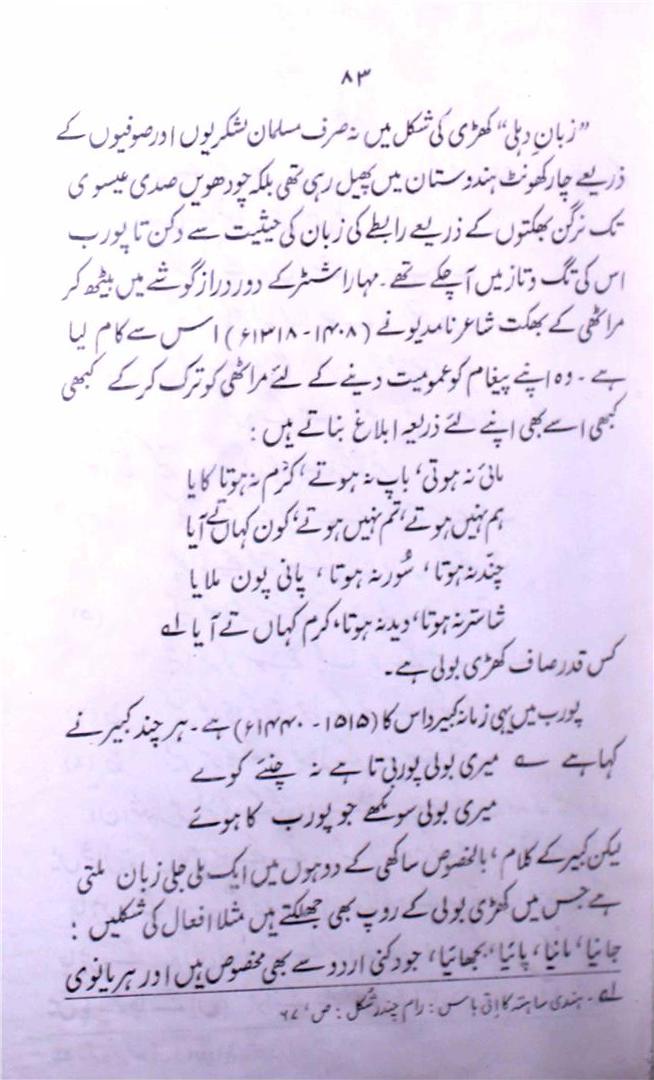 ۸۳
”زبانِ دہلی“ کھڑی کی شکل میں نہ صرف مسلمان لشکریوں اور صوفیوں کے
ذریعے چار کھونٹ ہندوستان میں پھیل رہی تھی بلکہ چودھویں صدی عیسوی
تک نرگن بھکتوں کے ذریعے رابطے کی زبان کی حیثیت سے دکن تا پورب
اس کی تگ و تاز میں آ چکے تھے۔ مہاراشٹر کے دور دراز گوشے میں بیٹھ کر
مراٹھی کے بھکت شاعر نامدیو نے (۱۴۰۸ - ۱۳۱۸ء) اس سے کام لیا
ہے۔ وہ اپنے پیغام کو عمومیت دینے کے لئے مراٹھی کو ترک کر کے کبھی
کبھی اسے بھی اپنے لئے ذریعہ ابلاغ بناتے ہیں :
مائی نہ ہوتی، باپ نہ ہوتے، کرم نہ ہوتا کایا
ہم نہیں ہوتے، تم نہیں ہوتے، کون کہاں تے آیا
چند نہ ہوتا، سُور نہ ہوتا، پانی پون ملایا
شاستر نہ ہوتا، دید نہ ہوتا، کرم کہاں تے آیا ؂۱
کس قدر صاف کھڑی بولی ہے۔
پورب میں یہی زمانہ کبیر داس کا (۱۵۱۵ - ۱۴۴۰ء) ہے۔ ہر چند کبیر نے
کہا ہے ؎ میری بولی پوربی تا ہے نہ چنئے کوے
میری بولی سو نکھے جو پورب کا ہوئے
لیکن کبیر کے کلام، بالخصوص ساکھی کے دوہوں میں ایک ملی جلی زبان ملتی
ہے جس میں کھڑی بولی کے روپ بھی جھلکتے ہیں مثلا افعال کی شکلیں :
جانیا، مانیا، پائیا، بجھائیا، جو دکنی اردو سے بھی مخصوص ہیں اور ہریانوی
؂۱ - ہندی ساہتہ کا اتی ہاس : رام چندر شکل : ص، ۶۷